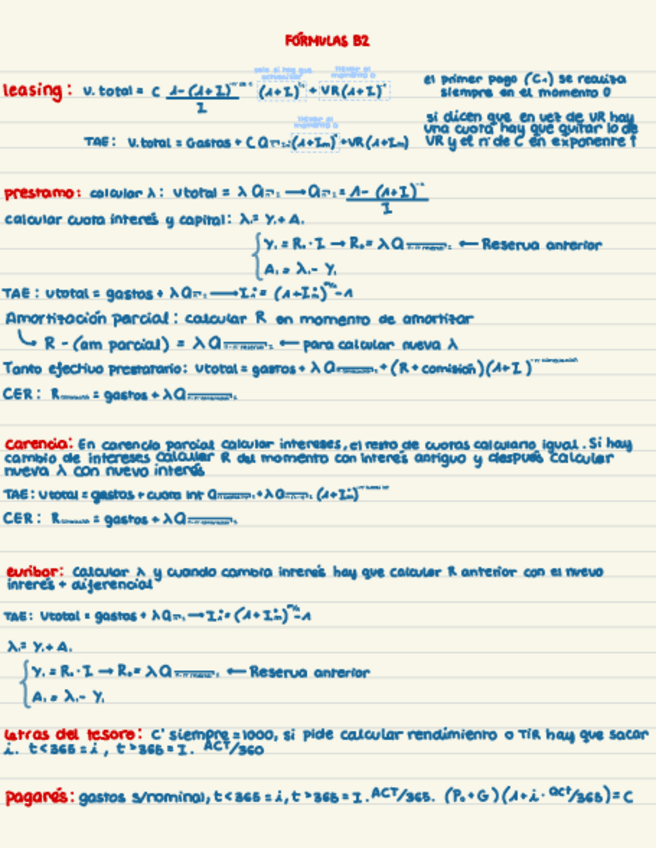 FÓRMULAS B2
solo si hay que actualizar
llevar al momento 0
leasing: V. total = C 1-(1+I) / I (1+I) + VR(1+I)
el primer pago (C₁) se realiza
siempre en el momento 0
llevar al momento 0
TAE: V.total = Gastos + C a (1+Im) + VR(1+Im)
si dicen que en vez de VR hay
una cuota hay que quitar lo de
VR y el nº de C en exponente ↑
prestamo: calcular λ: Vtotal = λ a → a = 1-(1+I) / I
calcular cuota interés y capital: λ = Y + A
Y = R · I → R = λ a ← Reserva anterior
A = λ - Y
TAE: Vtotal = gastos + λ a → I = (1+I) -1
Amortización parcial: calcular R en momento de amortizar
R - (am parcial) = λ a ← para calcular nueva λ
Tanto efectivo prestatario: Vtotal = gastos + λ a + (R + comisión)(1+I)
CER: R = gastos + λ a
carencia: En carencia parcial calcular intereses, el resto de cuotas calcularlo igual. Si hay
cambio de intereses calcular R del momento con interés antiguo y después calcular
nueva λ con nuevo interés
TAE: Vtotal = gastos + cuota int a + λ a (1+I)
CER: R = gastos + λ a
euribor: Calcular λ y cuando cambia interés hay que calcular R anterior con el nuevo
interés + diferencial
TAE: Vtotal = gastos + λ a → I = (1+I) -1
λ = Y + A
Y = R · I → R = λ a ← Reserva anterior
A = λ - Y
Letras del tesoro: C' siempre = 1000, si pide calcular rendimiento o TIR hay que sacar
i. t<365 = i, t>365 = I. ACT/360
pagarés: gastos s/nominal, t<365 = i, t>365 = I. ACT/365. (P₀+G)(1+i·act/365) = C